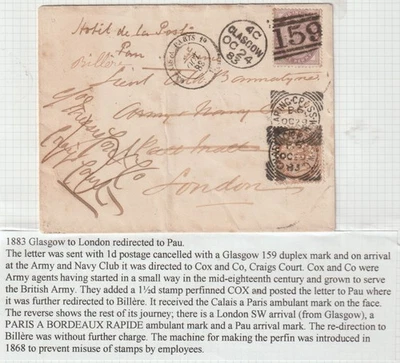 Hotel de la Poste
Pau
Billère
CALAIS A PARIS 1º
4C
GLASGOW
OC 24
83
159
Army & Navy Club
London
CHARING-CROSS
OC
83
1883 Glasgow to London redirected to Pau.
The letter was sent with 1d postage cancelled with a Glasgow 159 duplex mark and on arrival
at the Army and Navy Club it was directed to Cox and Co, Craigs Court. Cox and Co were
Army agents having started in a small way in the mid-eighteenth century and grown to serve
the British Army. They added a 1½d stamp perfinned COX and posted the letter to Pau where
it was further redirected to Billère. It received the Calais a Paris ambulant mark on the face.
The reverse shows the rest of its journey; there is a London SW arrival (from Glasgow), a
PARIS A BORDEAUX RAPIDE ambulant mark and a Pau arrival mark. The re-direction to
Billère was without further charge. The machine for making the perfin was introduced in
1868 to prevent misuse of stamps by employees.